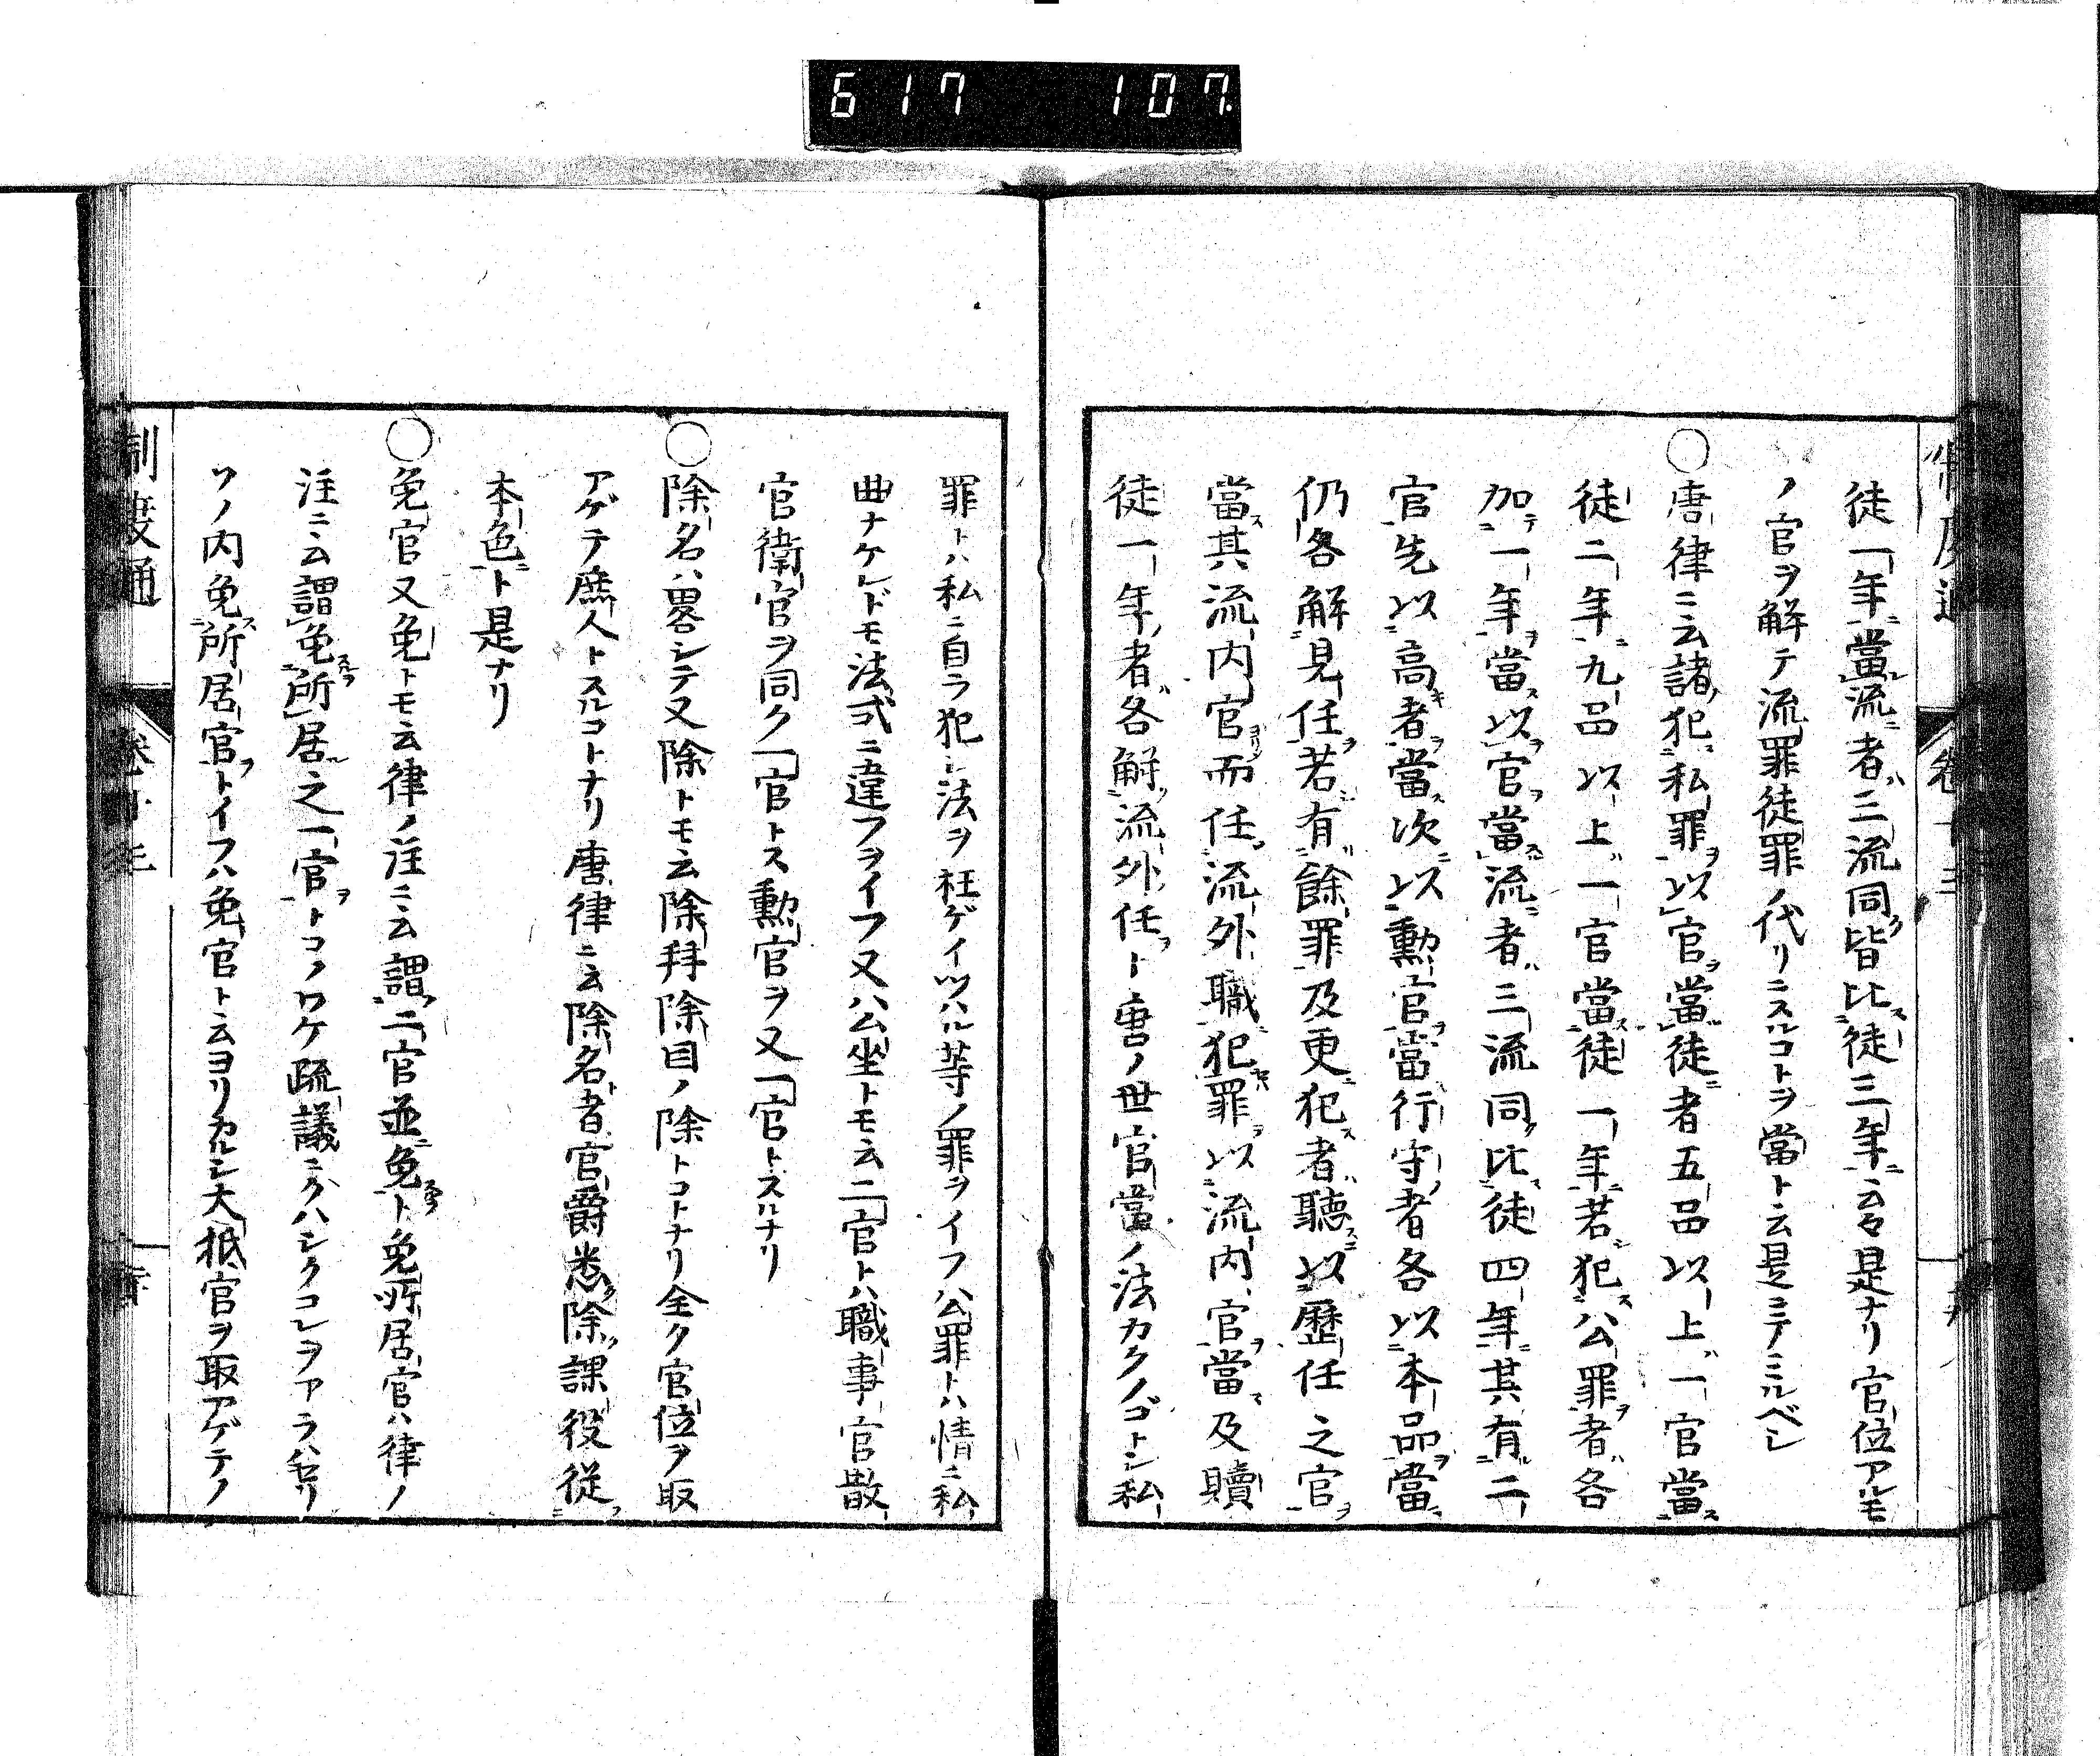 617 107
徒一年當流者三流同皆比徒三年云々是ナリ官位アルモ
ノ官ヲ解テ流罪徒罪ノ代リニスルコトヲ當ト云是ニテミルベシ
○唐律ニ云諸犯私罪以官當徒者五品以上一官當
徒二年九品以上一官當徒一年若犯公罪者各
加一年當以官當流者三流同比徒四年其有二
官先以高者當次以勳官當行守者各以本品當
仍各解見任若有餘罪及更犯者聽以歷任之官
當其流内官而任流外職犯罪以流内官當及贖
徒一年者各解流外任ト唐ノ世官當ノ法カクノゴトシ私
罪トハ私ニ自ラ犯ト法ヲ枉ゲイツハル等ノ罪ヲイフ公罪トハ情ニ私
曲ナケレドモ法式ニ違フヲイフ又ハ公坐トモ云二官トハ職事官散
官衛官ヲ同ク一官トス勳官ヲ又一官トスルナリ
○除名ハ畧シテ又除トモ云除拜除目ノ除トコトナリ全ク官位ヲ取
アゲテ庶人トスルコトナリ唐律ニ云除名者官爵悉除課役從
本色ト是ナリ
○免官又免トモ云律ノ注ニ云謂二官並免ト免所居官ハ律ノ
注ニ云謂免所居之一官トコノワケ疏議ニクハシクコレヲアラハセリ
ソノ内免所居官トイフハ免官ト云ヨリカルシ大抵官ヲ取アゲテノ
制度通